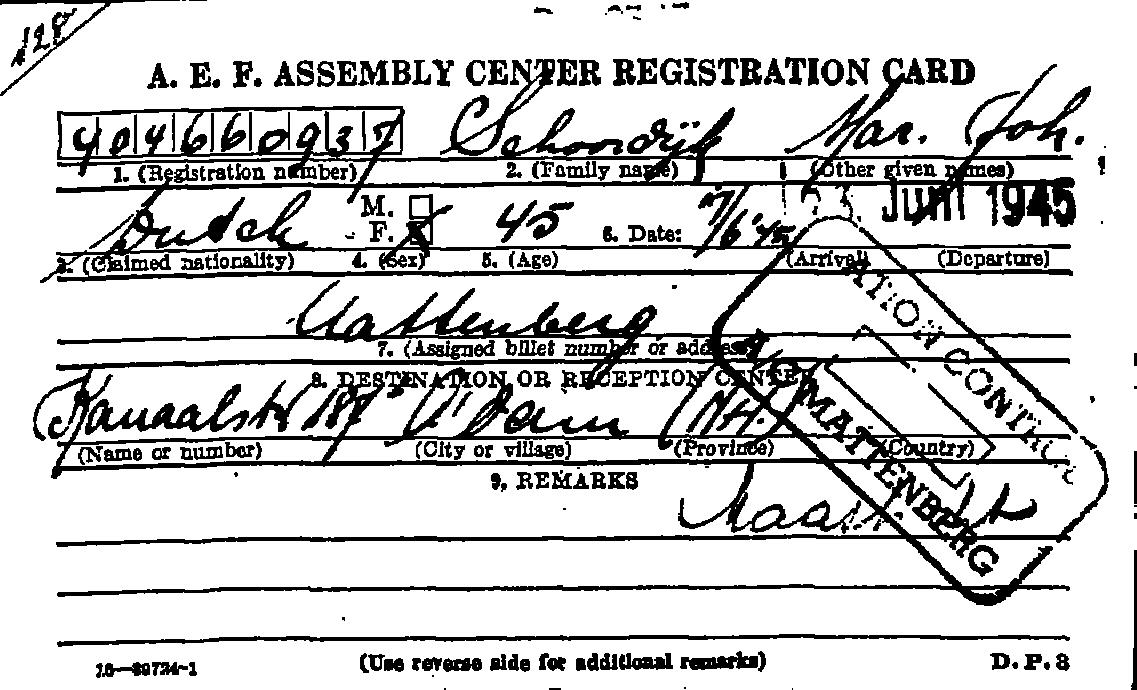 128
A. E. F. ASSEMBLY CENTER REGISTRATION CARD
404660937 Schoordijk Mar. Joh.
1. (Registration number) 2. (Family name) (Other given names)
Dutch M. F. X 45 6. Date: 7/6'45 23 JUNI 1945
3. (Claimed nationality) 4. (Sex) 5. (Age) (Arrival) (Departure)
7. (Assigned billet number or address)
8. DESTINATION OR RECEPTION CENTER
Kanaalstr 187 A'dam (N.H.)
(Name or number) (City or village) (Province) (Country)
9. REMARKS
MATTENBERG
(Use reverse side for additional remarks) D.P.3
16—39724-1